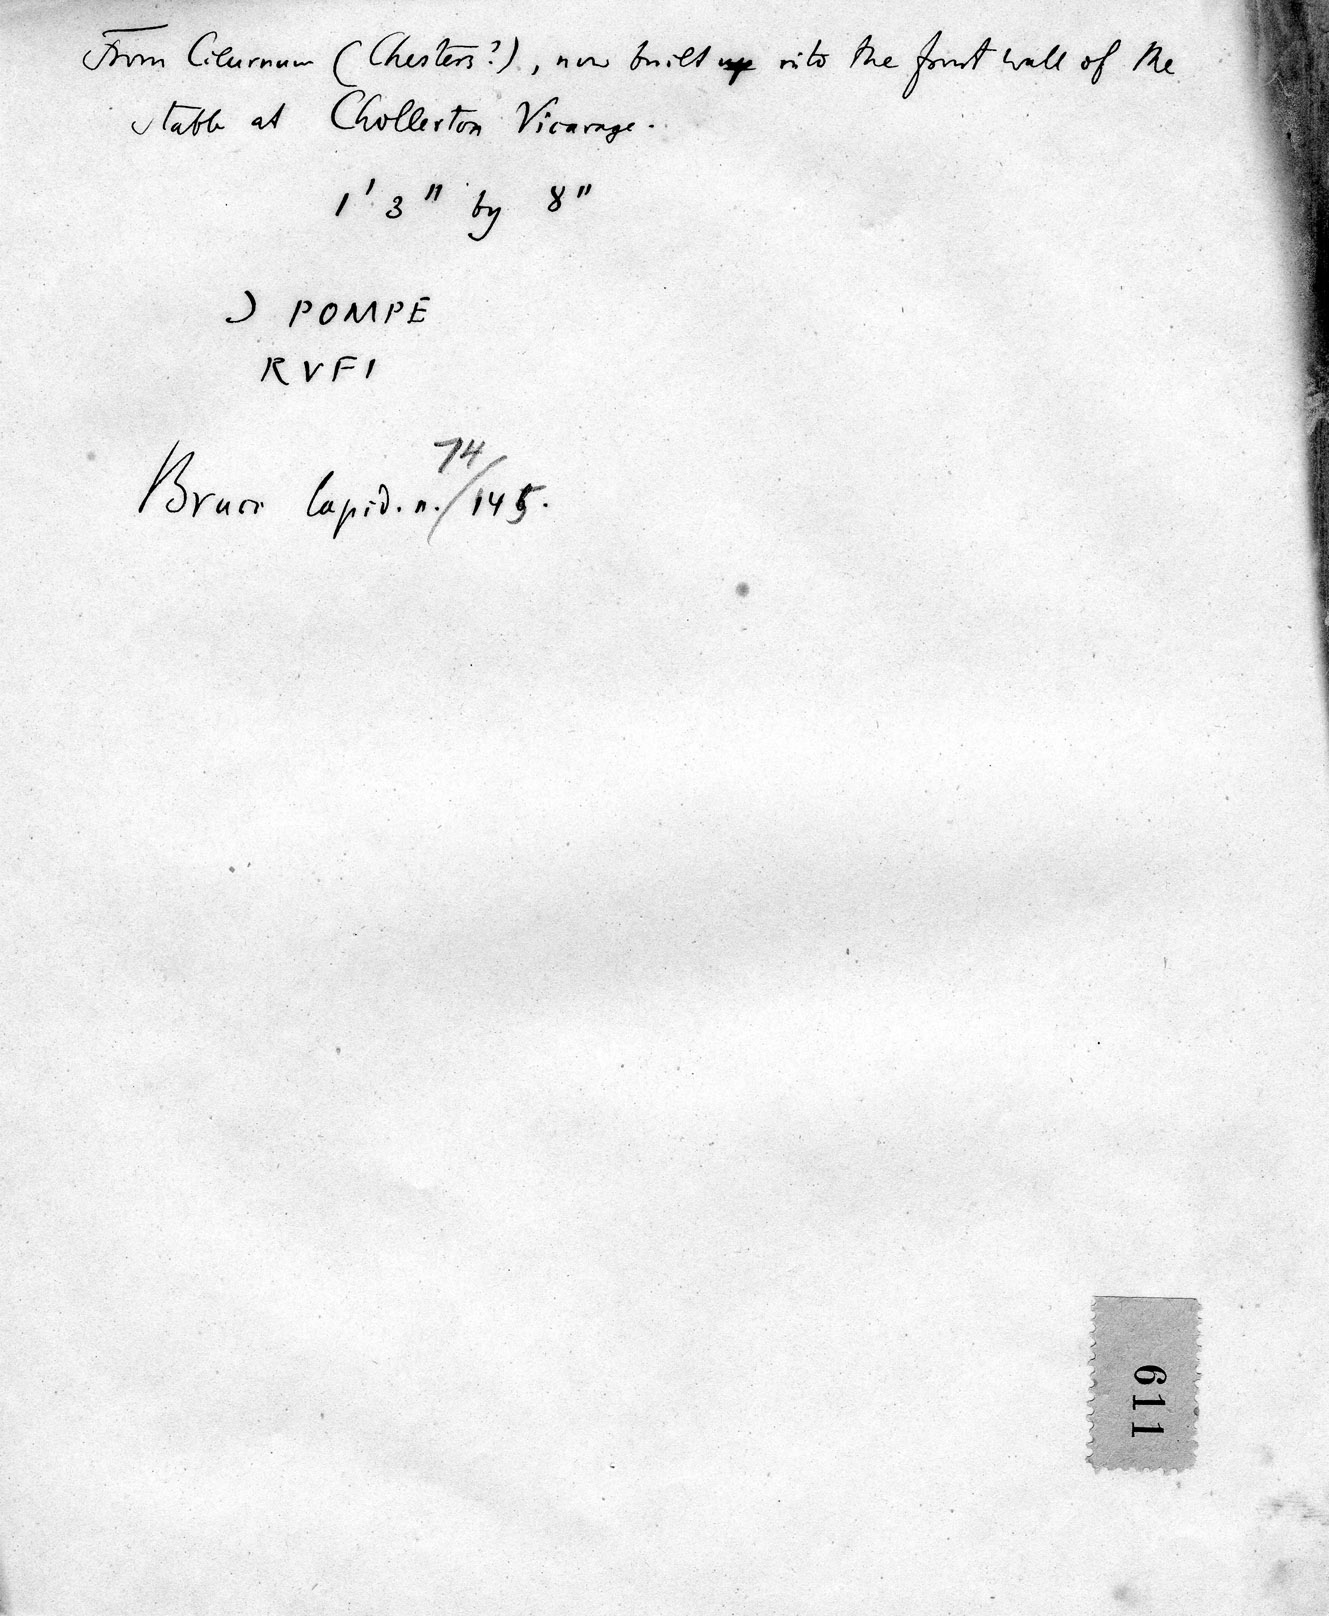 From Cilurnum (Chesters?), now built up into the front wall of the
stable at Chollerton Vicarage.
1' 3" by 8"
Ɔ POMPE
RVFI
74
Bruce lapid. n. / 145.
611